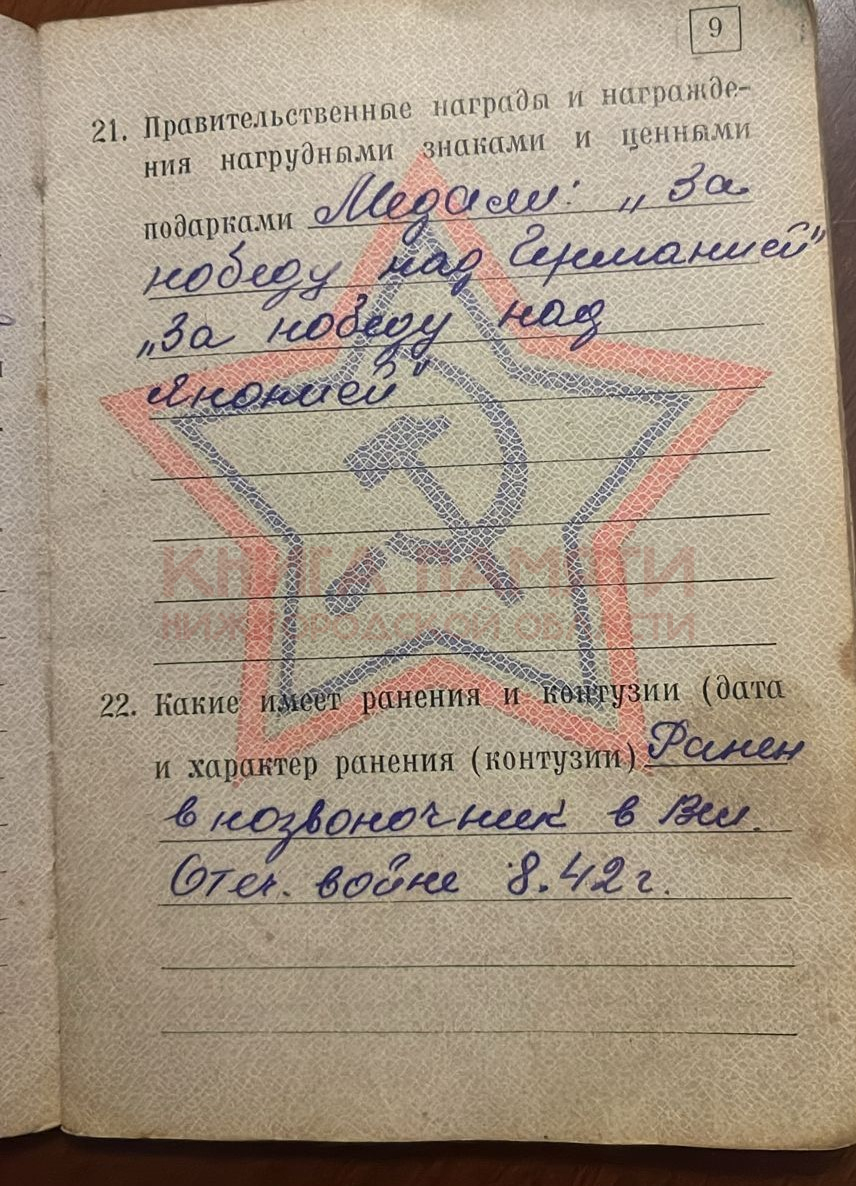 9
21. Правительственные награды и награжде-
ния нагрудными знаками и ценными
подарками Медали: „За
победу над Германией"
„За победу над
Японией"
КНИГА ПАМЯТИ
НИЖЕГОРОДСКОЙ ОБЛАСТИ
22. Какие имеет ранения и контузии (дата
и характер ранения (контузии) Ранен
в позвоночник в Вел.
Отеч. войне 8.42 г.